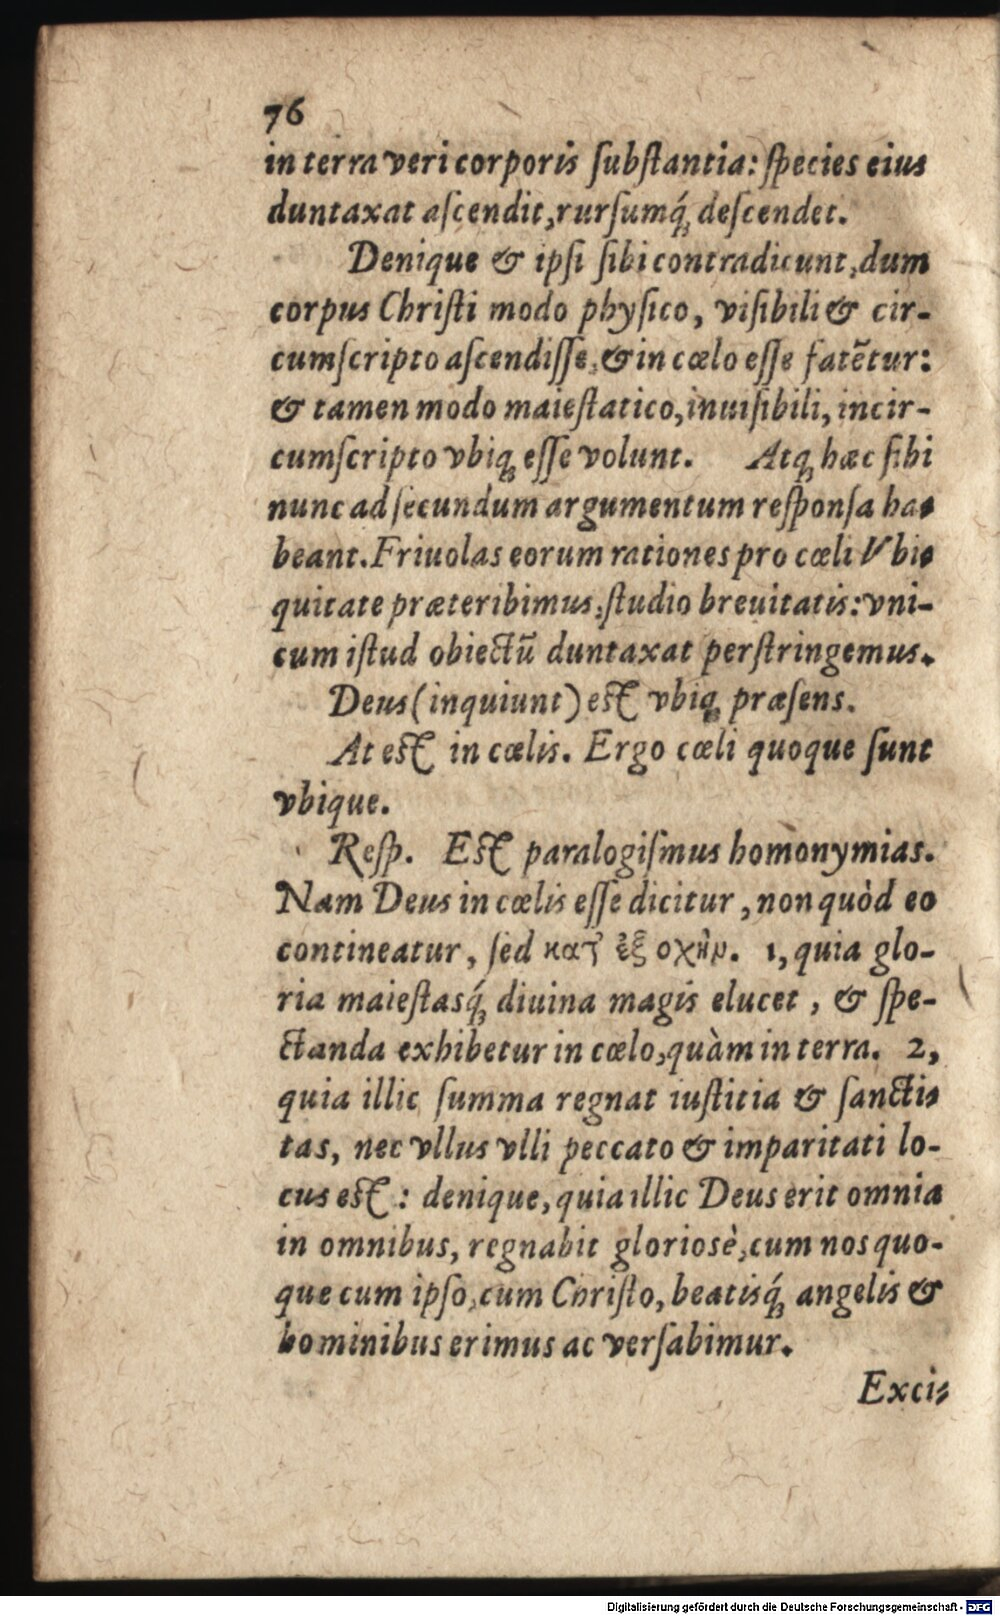 76
in terra veri corporis ſubſtantia: ſpecies eius
duntaxat aſcendit, rurſumq́ꝫ deſcendet.
Denique & ipſi ſibi contradicunt, dum
corpus Chriſti modo phyſico, viſibili & cir-
cumſcripto aſcendiſſe, & in cœlo eſſe fatētur:
& tamen modo maieſtatico, inuiſibili, incir-
cumſcripto vbiqꝫ eſſe volunt. Atqꝫ hæc ſibi
nunc ad ſecundum argumentum reſponſa ha-
beant. Friuolas eorum rationes pro cœli Vbi-
quitate præteribimus, ſtudio breuitatis: vni-
cum iſtud obiectū duntaxat perſtringemus.
Deus (inquiunt) eſt vbiqꝫ præſens.
At eſt in cœlis. Ergo cœli quoque ſunt
vbique.
Reſp. Eſt paralogiſmus homonymias.
Nam Deus in cœlis eſſe dicitur, non quòd eo
contineatur, ſed κατ᾽ ἐξ οχὴν. 1, quia glo-
ria maieſtasq́ꝫ diuina magis elucet, & ſpe-
ctanda exhibetur in cœlo, quàm in terra. 2,
quia illic ſumma regnat iuſtitia & ſancti-
tas, nec vllus vlli peccato & imparitati lo-
cus eſt: denique, quia illic Deus erit omnia
in omnibus, regnabit glorioſè, cum nos quo-
que cum ipſo, cum Chriſto, beatisq́ꝫ angelis &
hominibus erimus ac verſabimur.
Exci-
Digitalisierung gefördert durch die Deutsche Forschungsgemeinschaft - DFG